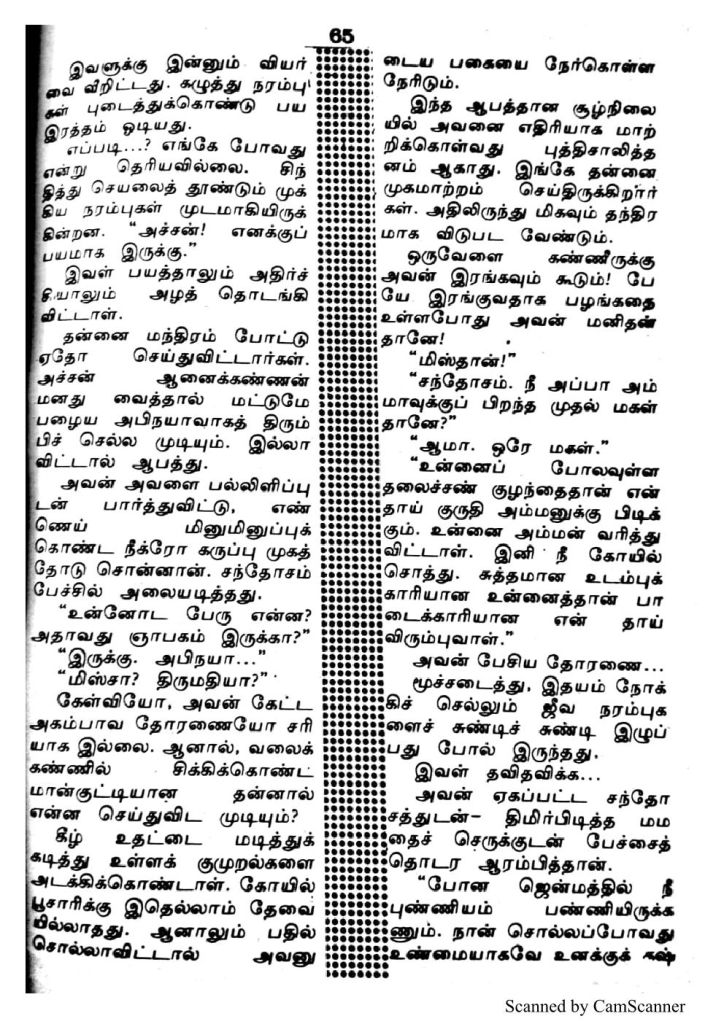 65
இவளுக்கு இன்னும் வியர்
வை வீறிட்டது. கழுத்து நரம்பு
கள் புடைத்துக்கொண்டு பய
இரத்தம் ஓடியது.
எப்படி...? எங்கே போவது
என்று தெரியவில்லை. சிந்
தித்து செயலைத் தூண்டும் முக்
கிய நரம்புகள் முடமாகியிருக்
கின்றன. “அச்சன்! எனக்குப்
பயமாக இருக்கு.”
இவள் பயத்தாலும் அதிர்ச்
சியாலும் அழத் தொடங்கி
விட்டாள்.
தன்னை மந்திரம் போட்டு
ஏதோ செய்துவிட்டார்கள்.
அச்சன் ஆனைக்கண்ணன்
மனது வைத்தால் மட்டுமே
பழைய அபிநயாவாகத் திரும்
பிச் செல்ல முடியும். இல்லா
விட்டால் ஆபத்து.
அவன் அவளை பல்லிளிப்பு
டன் பார்த்துவிட்டு, எண்
ணெய் மினுமினுப்புக்
கொண்ட நீக்ரோ கருப்பு முகத்
தோடு சொன்னான். சந்தோசம்
பேச்சில் அலையடித்தது.
“உன்னோட பேரு என்ன?
அதாவது ஞாபகம் இருக்கா?”
“இருக்கு. அபிநயா...”
“மிஸ்சா? திருமதியா?”
கேள்வியோ, அவன் கேட்ட
அகம்பாவ தோரணையோ சரி
யாக இல்லை. ஆனால், வலைக்
கண்ணில் சிக்கிக்கொண்ட
மான்குட்டியான தன்னால்
என்ன செய்துவிட முடியும்?
கீழ் உதட்டை மடித்துக்
கடித்து உள்ளக் குமுறல்களை
அடக்கிக்கொண்டாள். கோயில்
பூசாரிக்கு இதெல்லாம் தேவை
யில்லாதது. ஆனாலும் பதில்
சொல்லாவிட்டால் அவனு
டைய பகையை நேர்கொள்ள
நேரிடும்.
இந்த ஆபத்தான சூழ்நிலை
யில் அவனை எதிரியாக மாற்
றிக்கொள்வது புத்திசாலித்த
னம் ஆகாது. இங்கே தன்னை
முகமாற்றம் செய்திருக்கிறார்
கள். அதிலிருந்து மிகவும் தந்திர
மாக விடுபட வேண்டும்.
ஒருவேளை கண்ணீருக்கு
அவன் இரங்கவும் கூடும்! பே
யே இரங்குவதாக பழங்கதை
உள்ளபோது அவன் மனிதன்
தானே!
“மிஸ்தான்!”
“சந்தோசம். நீ அப்பா அம்
மாவுக்குப் பிறந்த முதல் மகள்
தானே?”
“ஆமா. ஒரே மகள்.”
“உன்னைப் போலவுள்ள
தலைச்சண் குழந்தைதான் என்
தாய் குருதி அம்மனுக்கு பிடிக்
கும். உன்னை அம்மன் வரித்து
விட்டாள். இனி நீ கோயில்
சொத்து. சுத்தமான உடம்புக்
காரியான உன்னைத்தான் பா
டைக்காரியான என் தாய்
விரும்புவாள்.”
அவன் பேசிய தோரணை...
மூச்சடைத்து, இதயம் நோக்
கிச் செல்லும் ஜீவ நரம்புக
ளைச் சுண்டிச் சுண்டி இழுப்
பது போல் இருந்தது.
இவள் தவிதவிக்க...
அவன் ஏகப்பட்ட சந்தோ
சத்துடன்– திமிர்பிடித்த மம
தைச் செருக்குடன் பேச்சைத்
தொடர ஆரம்பித்தான்.
“போன ஜென்மத்தில் நீ
புண்ணியம் பண்ணியிருக்க
ணும். நான் சொல்லப்போவது
உண்மையாகவே உனக்குக் கஷ்
Scanned by CamScanner